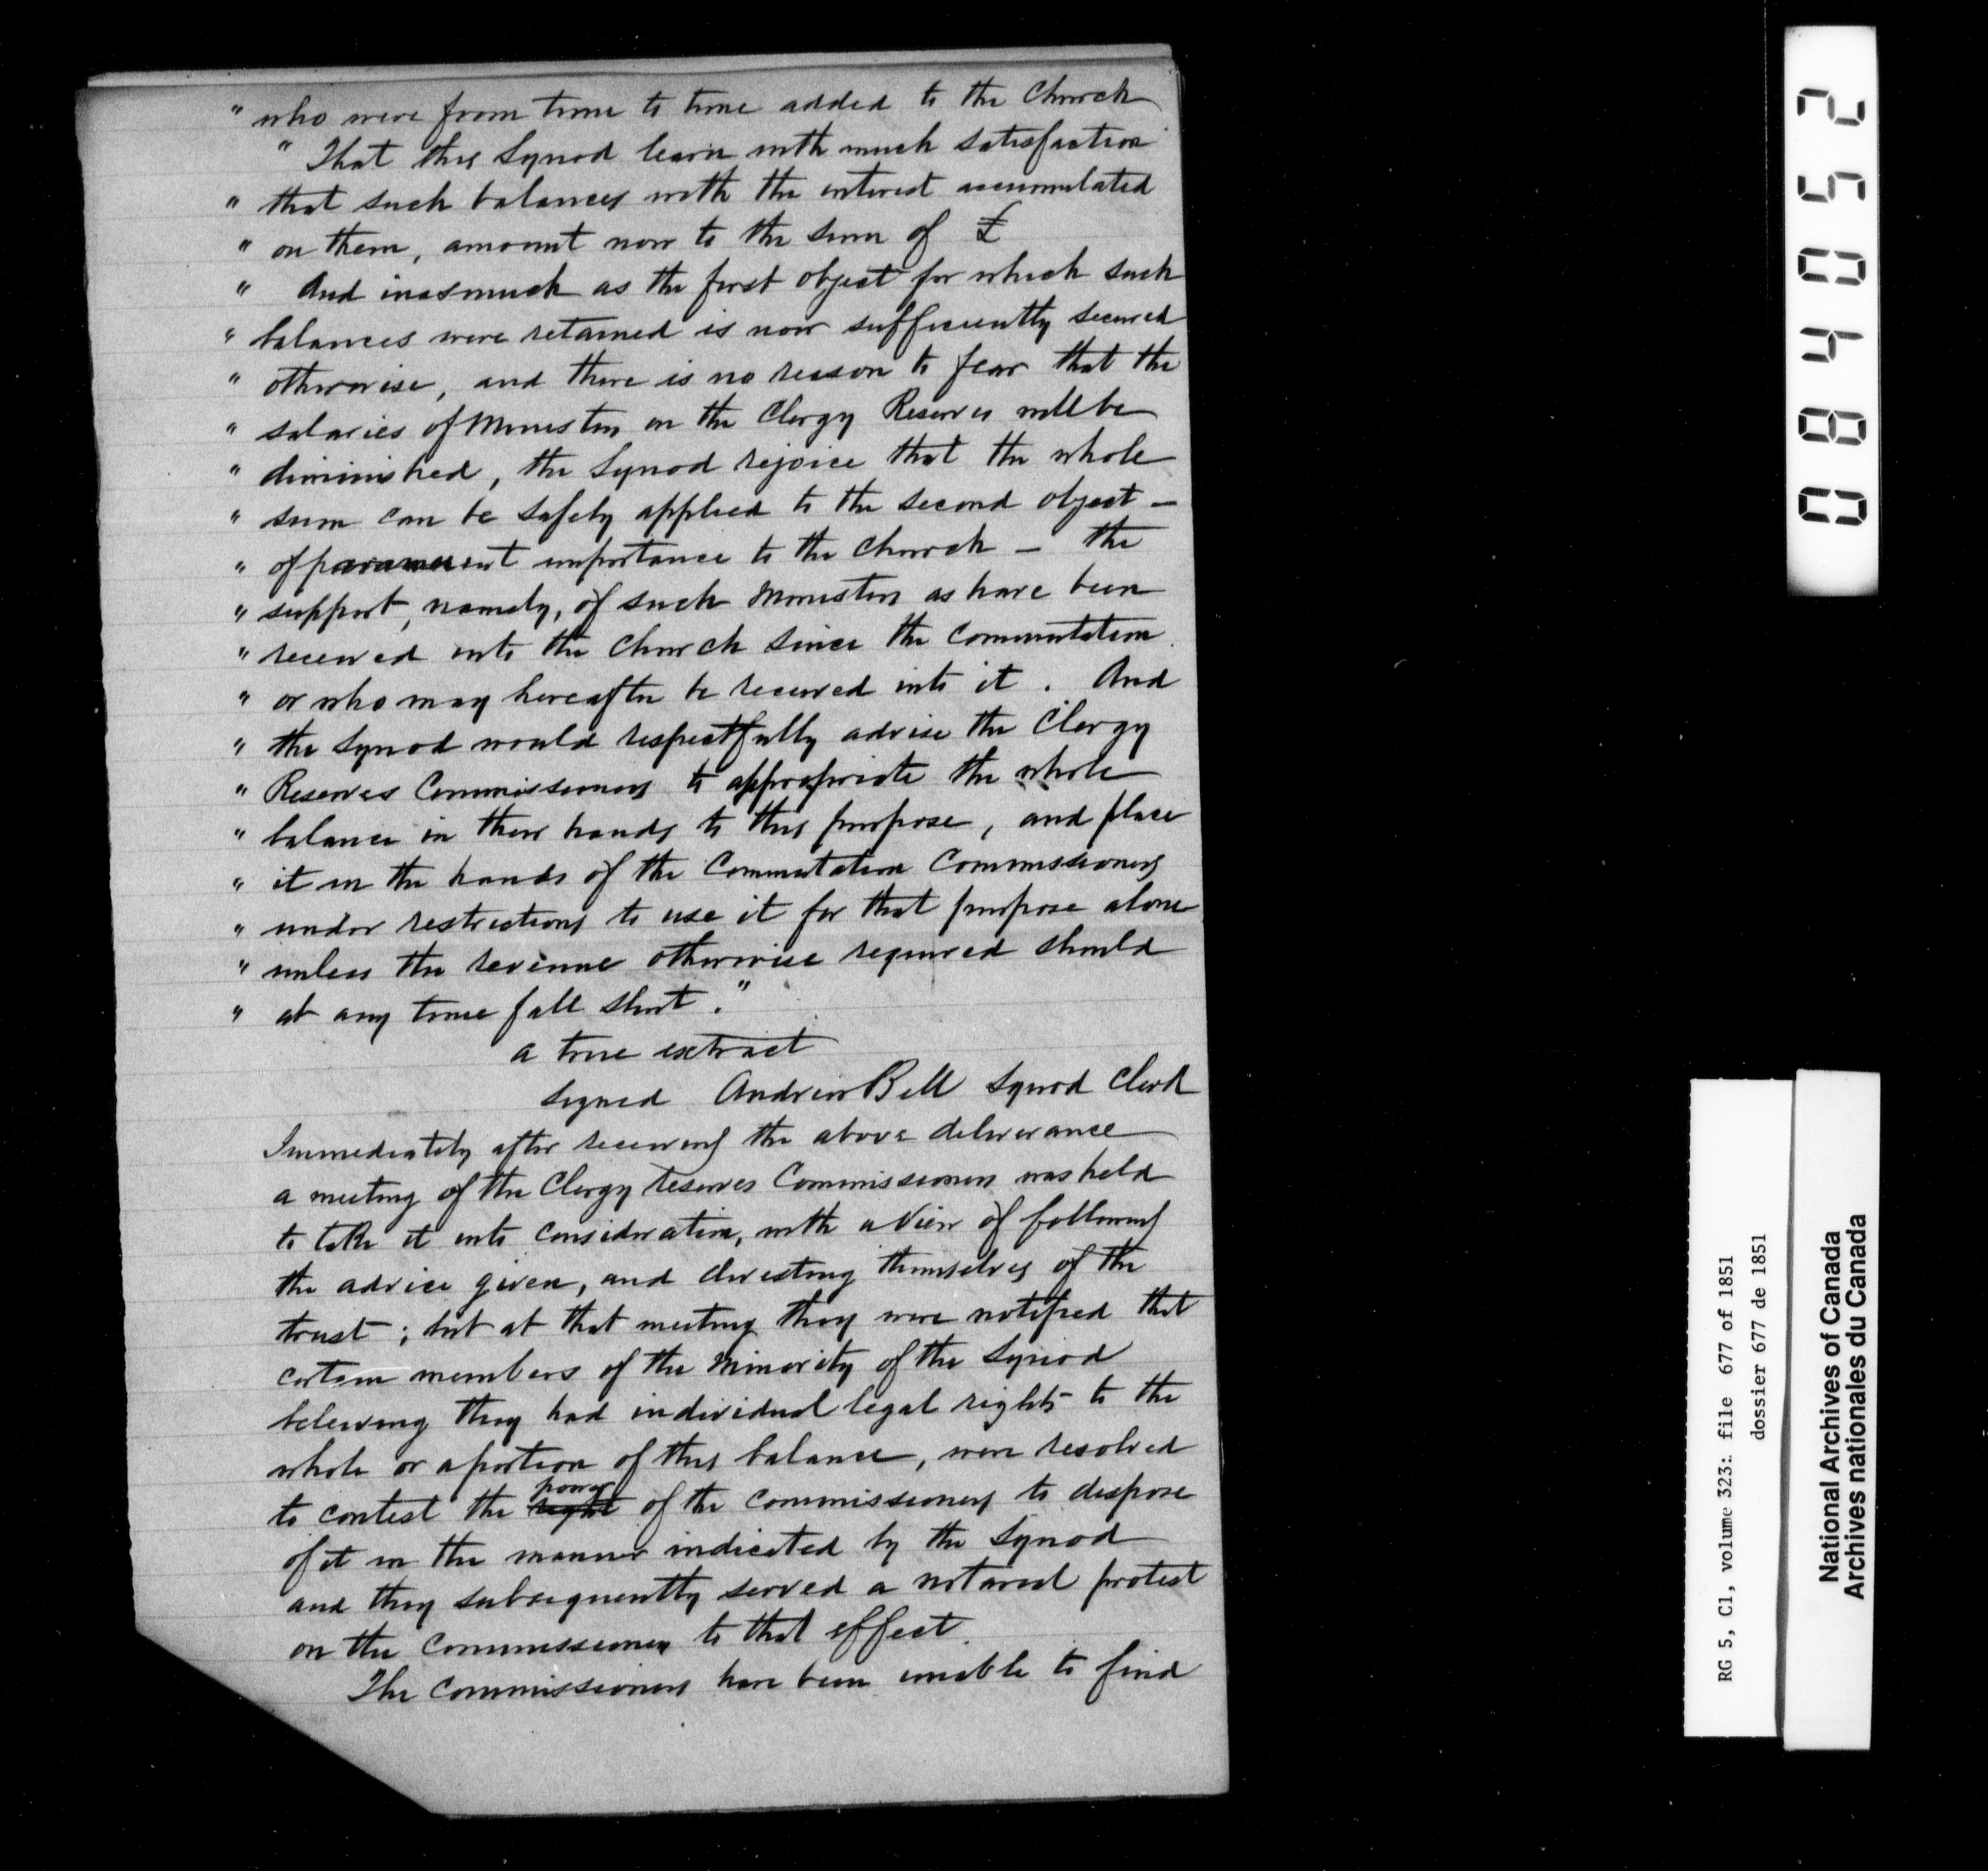 " who were from time to time added to the Church
" That this Synod learn with much satisfaction
" that such balances with the interest accumulated
" on them, amount now to the sum of £
" And inasmuch as the first object for which such
" balances were retained is now sufficiently secured
" otherwise, and there is no reason to fear that the
" salaries of Ministers on the Clergy Reserves will be
" diminished, the Synod rejoice that the whole
" sum can be safely applied to the second object —
" of paramount importance to the Church — the
" support, namely, of such Ministers as have been
" received into the Church since the Commutation
" or who may hereafter be received into it. And
" the Synod would respectfully advise the Clergy
" Reserves Commissioners to appropriate the whole
" balance in their hands to this purpose, and place
" it in the hands of the Commutation Commissioners
" under restrictions to use it for that purpose alone
" unless the revenue otherwise required should
" at any time fall short."
a true extract
signed Andrew Bell Synod Clerk
Immediately after receiving the above deliverance
a meeting of the Clergy Reserves Commissioners was held
to take it into consideration, with a view of following
the advice given, and divesting themselves of the
trust; but at that meeting they were notified that
certain members of the Minority of the Synod
believing they had individual legal rights to the
whole or a portion of this balance, were resolved
to contest the right power of the Commissioners to dispose
of it in the manner indicated by the Synod
and they subsequently served a notarial protest
on the Commissioners to that effect.
The Commissioners have been unable to find
084052
RG 5, C1, volume 323: file 677 of 1851
dossier 677 de 1851
National Archives of Canada
Archives nationales du Canada